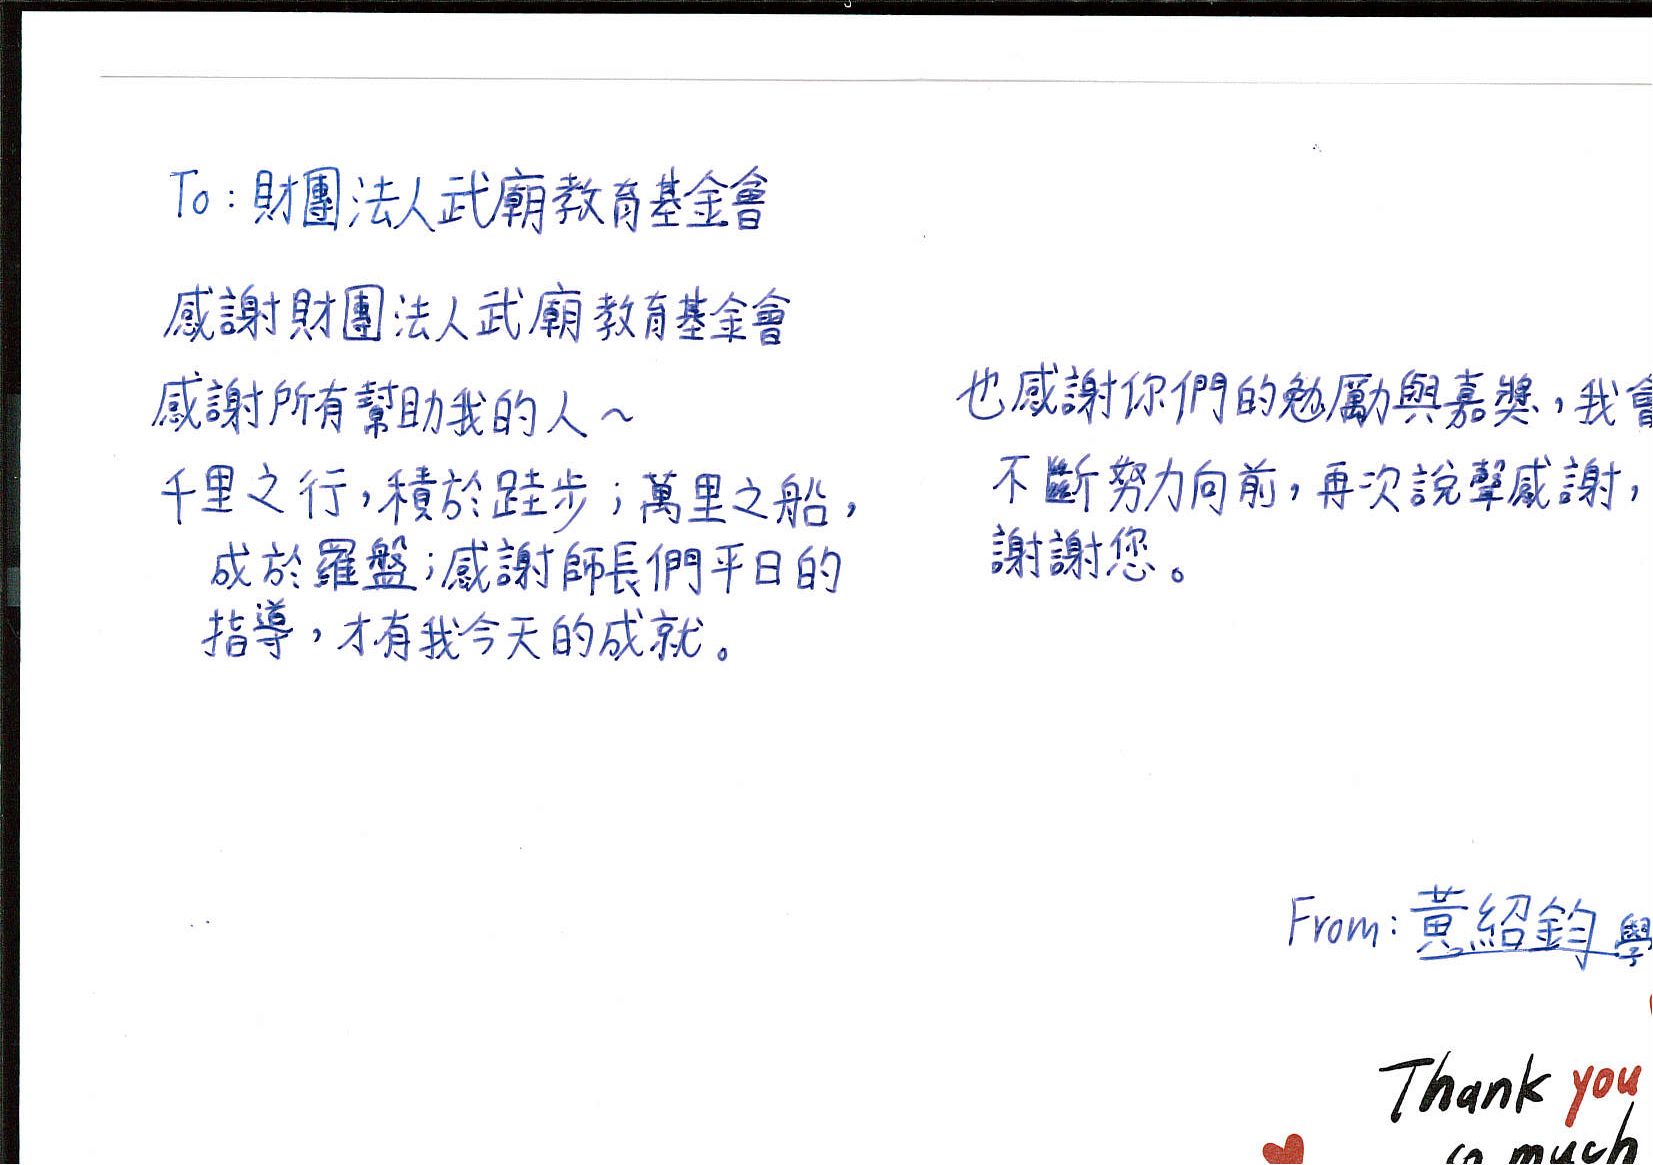 To: 財團法人武廟教育基金會
感謝財團法人武廟教育基金會
感謝所有幫助我的人～
千里之行，積於跬步；萬里之船，
成於羅盤；感謝師長們平日的
指導，才有我今天的成就。
也感謝你們的勉勵與嘉獎，我會
不斷努力向前，再次說聲感謝，
謝謝您。
From: 黃紹鈞 學
Thank you
so much